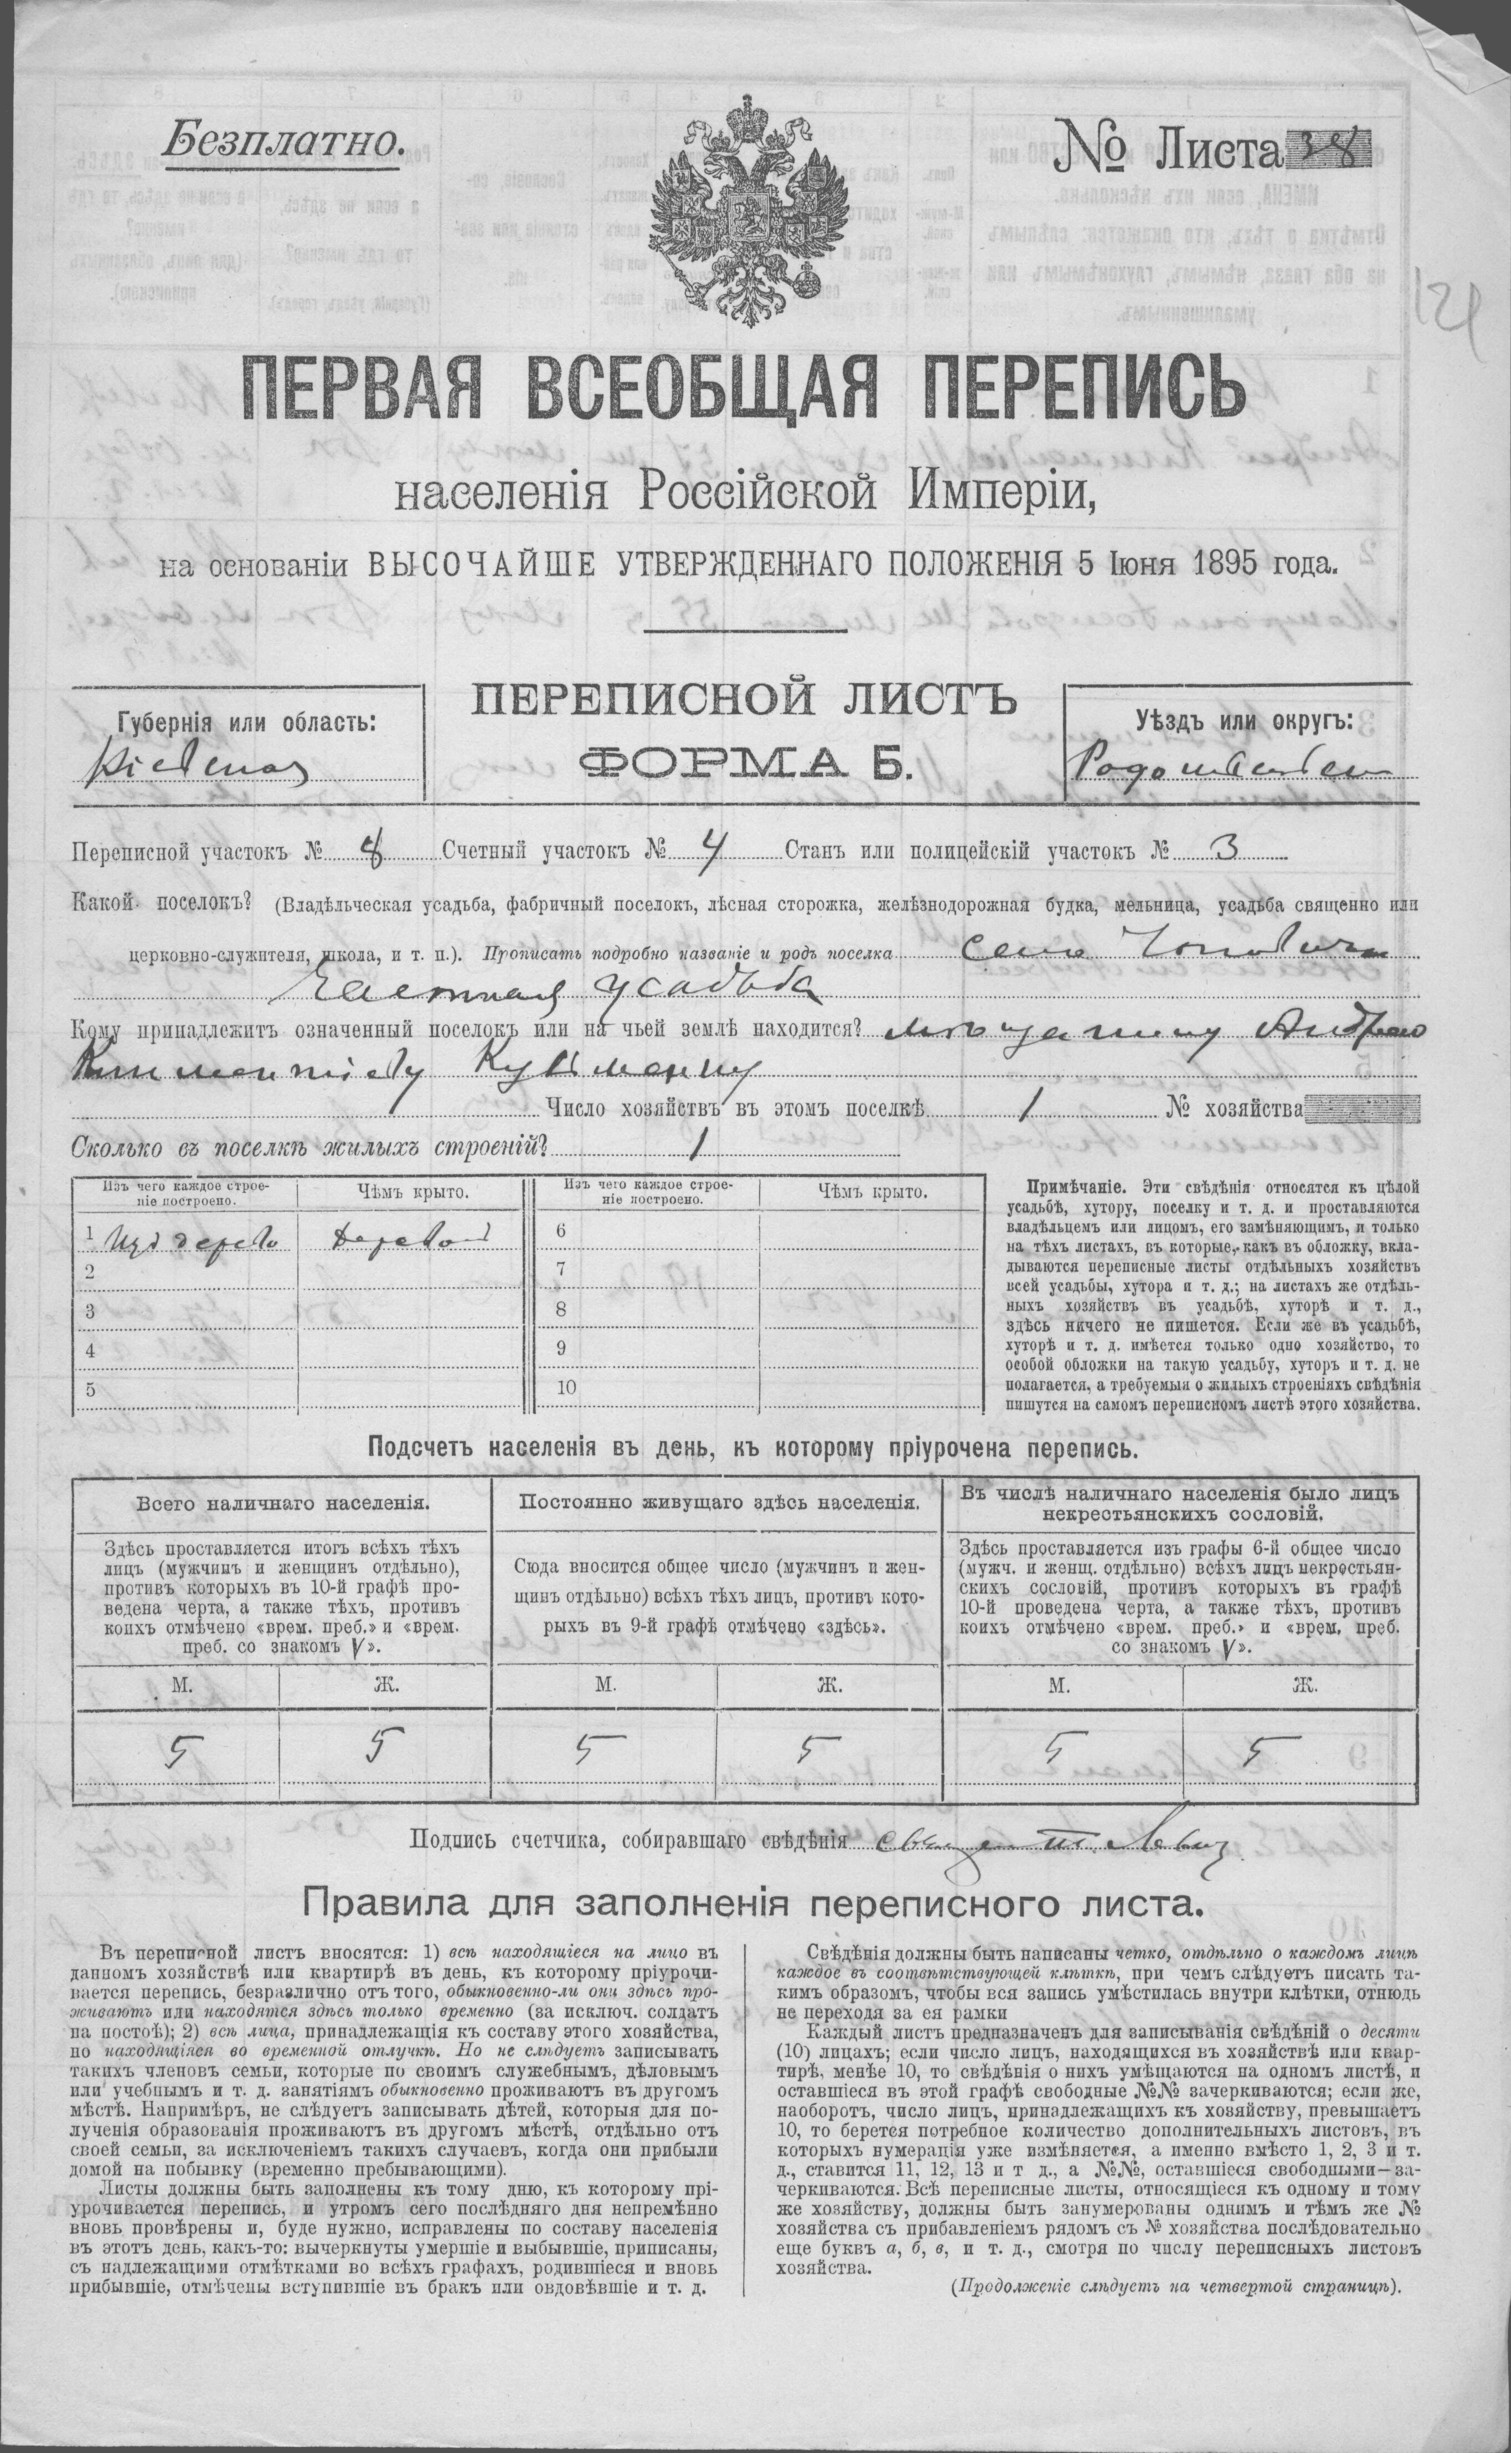 Безплатно.
№ Листа 38
121
ПЕРВАЯ ВСЕОБЩАЯ ПЕРЕПИСЬ
населенія Россійской Имперіи,
на основаніи ВЫСОЧАЙШЕ УТВЕРЖДЕННАГО ПОЛОЖЕНІЯ 5 Іюня 1895 года.
ПЕРЕПИСНОЙ ЛИСТЪ
ФОРМА Б.
Губернія или область:
Кіевская
Уѣздъ или округъ:
Радомысльскій
Переписной участокъ № 8 Счетный участокъ № 4 Станъ или полицейскій участокъ № 3
Какой поселокъ? (Владѣльческая усадьба, фабричный поселокъ, лѣсная сторожка, желѣзнодорожная будка, мельница, усадьба священно или
церковно-служителя, школа, и т. п.). Прописать подробно названіе и родъ поселка село
Частная усадьба
Кому принадлежитъ означенный поселокъ или на чьей землѣ находится? мѣщанину Андрею
Климентіеву Кузьменку
Число хозяйствъ въ этомъ поселкѣ 1 № хозяйства
Сколько въ поселкѣ жилыхъ строеній? 1
Изъ чего каждое строе-
ніе построено.
Чѣмъ крыто.
Изъ чего каждое строе-
ніе построено.
Чѣмъ крыто.
1 Изъ дерева
2
3
4
5
6
7
8
9
10
Примѣчаніе. Эти свѣдѣнія относятся къ цѣлой
усадьбѣ, хутору, поселку и т. д. и проставляются
владѣльцемъ или лицомъ, его замѣняющимъ, и только
на тѣхъ листахъ, въ которые, какъ въ обложку, вкла-
дываются переписные листы отдѣльныхъ хозяйствъ
всей усадьбы, хутора и т. д.; на листахъ же отдѣль-
ныхъ хозяйствъ въ усадьбѣ, хуторѣ и т. д.,
здѣсь ничего не пишется. Если же въ усадьбѣ,
хуторѣ и т. д. имѣется только одно хозяйство, то
особой обложки на такую усадьбу, хуторъ и т. д. не
полагается, а требуемыя о жилыхъ строеніяхъ свѣдѣнія
пишутся на самомъ переписномъ листѣ этого хозяйства.
Подсчетъ населенія въ день, къ которому пріурочена перепись.
Всего наличнаго населенія.
Здѣсь проставляется итогъ всѣхъ тѣхъ
лицъ (мужчинъ и женщинъ отдѣльно),
противъ которыхъ въ 10-й графѣ про-
ведена черта, а также тѣхъ, противъ
коихъ отмѣчено «врем. преб.» и «врем.
преб. со знакомъ V».
Постоянно живущаго здѣсь населенія.
Сюда вносится общее число (мужчинъ и жен-
щинъ отдѣльно) всѣхъ тѣхъ лицъ, противъ кото-
рыхъ въ 9-й графѣ отмѣчено «здѣсь».
Въ числѣ наличнаго населенія было лицъ
некрестьянскихъ сословій.
Здѣсь проставляется изъ графы 6-й общее число
(мужч. и женщ. отдѣльно) всѣхъ лицъ некрестьян-
скихъ сословій, противъ которыхъ въ графѣ
10-й проведена черта, а также тѣхъ, противъ
коихъ отмѣчено «врем. преб.» и «врем. преб.
со знакомъ V».
М. Ж. М. Ж. М. Ж.
5 5 5 5 5 5
Подпись счетчика, собиравшаго свѣдѣнія
Правила для заполненія переписного листа.
Въ переписной листъ вносятся: 1) всѣ находящіеся на лицо въ
данномъ хозяйствѣ или квартирѣ въ день, къ которому пріурочи-
вается перепись, безразлично отъ того, обыкновенно-ли они здѣсь про-
живаютъ или находятся здѣсь только временно (за исключ. солдатъ
на постоѣ); 2) всѣ лица, принадлежащія къ составу этого хозяйства,
но находящіяся во временной отлучкѣ. Но не слѣдуетъ записывать
такихъ членовъ семьи, которые по своимъ служебнымъ, дѣловымъ
или учебнымъ и т. д. занятіямъ обыкновенно проживаютъ въ другомъ
мѣстѣ. Напримѣръ, не слѣдуетъ записывать дѣтей, которыя для по-
лученія образованія проживаютъ въ другомъ мѣстѣ, отдѣльно отъ
своей семьи, за исключеніемъ такихъ случаевъ, когда они прибыли
домой на побывку (временно пребывающими).
Листы должны быть заполнены къ тому дню, къ которому прі-
урочивается перепись, и утромъ сего послѣдняго дня непремѣнно
вновь провѣрены и, буде нужно, исправлены по составу населенія
въ этотъ день, какъ-то: вычеркнуты умершіе и выбывшіе, приписаны,
съ надлежащими отмѣтками во всѣхъ графахъ, родившіеся и вновь
прибывшіе, отмѣчены вступившіе въ бракъ или овдовѣвшіе и т. д.
Свѣдѣнія должны быть написаны четко, отдѣльно о каждомъ лицѣ
каждое въ соотвѣтствующей клѣткѣ, при чемъ слѣдуетъ писать та-
кимъ образомъ, чтобы вся запись умѣстилась внутри клѣтки, отнюдь
не переходя за ея рамки
Каждый листъ предназначенъ для записыванія свѣдѣній о десяти
(10) лицахъ; если число лицъ, находящихся въ хозяйствѣ или квар-
тирѣ, менѣе 10, то свѣдѣнія о нихъ умѣщаются на одномъ листѣ, и
оставшіеся въ этой графѣ свободные №№ зачеркиваются; если же,
наоборотъ, число лицъ, принадлежащихъ къ хозяйству, превышаетъ
10, то берется потребное количество дополнительныхъ листовъ, въ
которыхъ нумерація уже измѣняется, а именно вмѣсто 1, 2, 3 и т.
д., ставится 11, 12, 13 и т д., а №№, оставшіеся свободными—за-
черкиваются. Всѣ переписные листы, относящіеся къ одному и тому
же хозяйству, должны быть занумерованы однимъ и тѣмъ же №
хозяйства съ прибавленіемъ рядомъ съ № хозяйства послѣдовательно
еще буквъ а, б, в, и т. д., смотря по числу переписныхъ листовъ
хозяйства.
(Продолженіе слѣдуетъ на четвертой страницѣ).